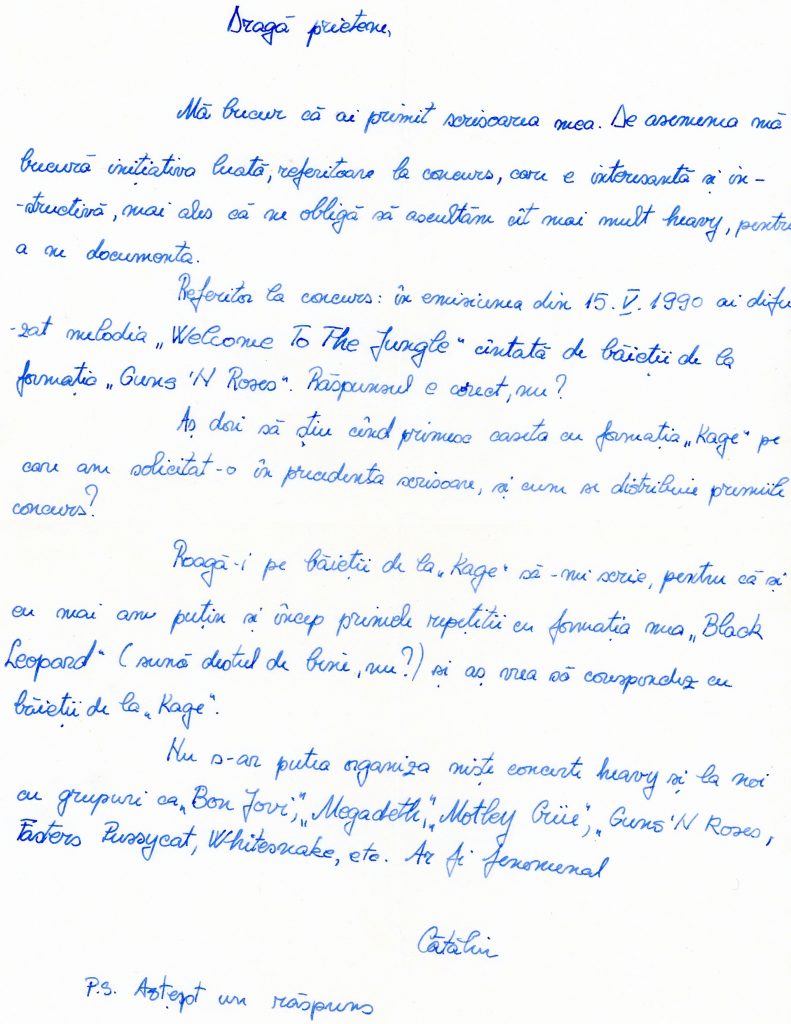 Dragă prietene,
Mă bucur că ai primit scrisoarea mea. De asemenea mă
bucură inițiativa luată, referitoare la concurs, care e interesantă și in-
-structivă, mai ales că ne obligă să ascultăm cît mai mult heavy, pentru
a ne documenta.
Referitor la concurs: în emisiunea din 15.V.1990 ai difu-
-zat melodia „Welcome To The Jungle" cîntată de băieții de la
formația „Guns 'N Roses". Răspunsul e corect, nu?
Aș dori să știu cînd primesc caseta cu formația „Kage" pe
care am solicitat-o în precedenta scrisoare, și cum se distribuie premiile
concurs?
Roagă-i pe băieții de la „Kage" să-mi scrie, pentru că și
eu mai am puțin și încep primele repetiții cu formația mea „Black
Leopard" (sună destul de bine, nu?) și aș vrea să corespondez cu
băieții de la „Kage".
Nu s-ar putea organiza niște concerte heavy și la noi
cu grupuri ca „Bon Jovi", „Megadeth", „Motley Crüe", „Guns 'N Roses,
Fasters Pussycat, Whitesnake, etc. Ar fi fenomenal
Cătălin
P.S. Aștept un răspuns